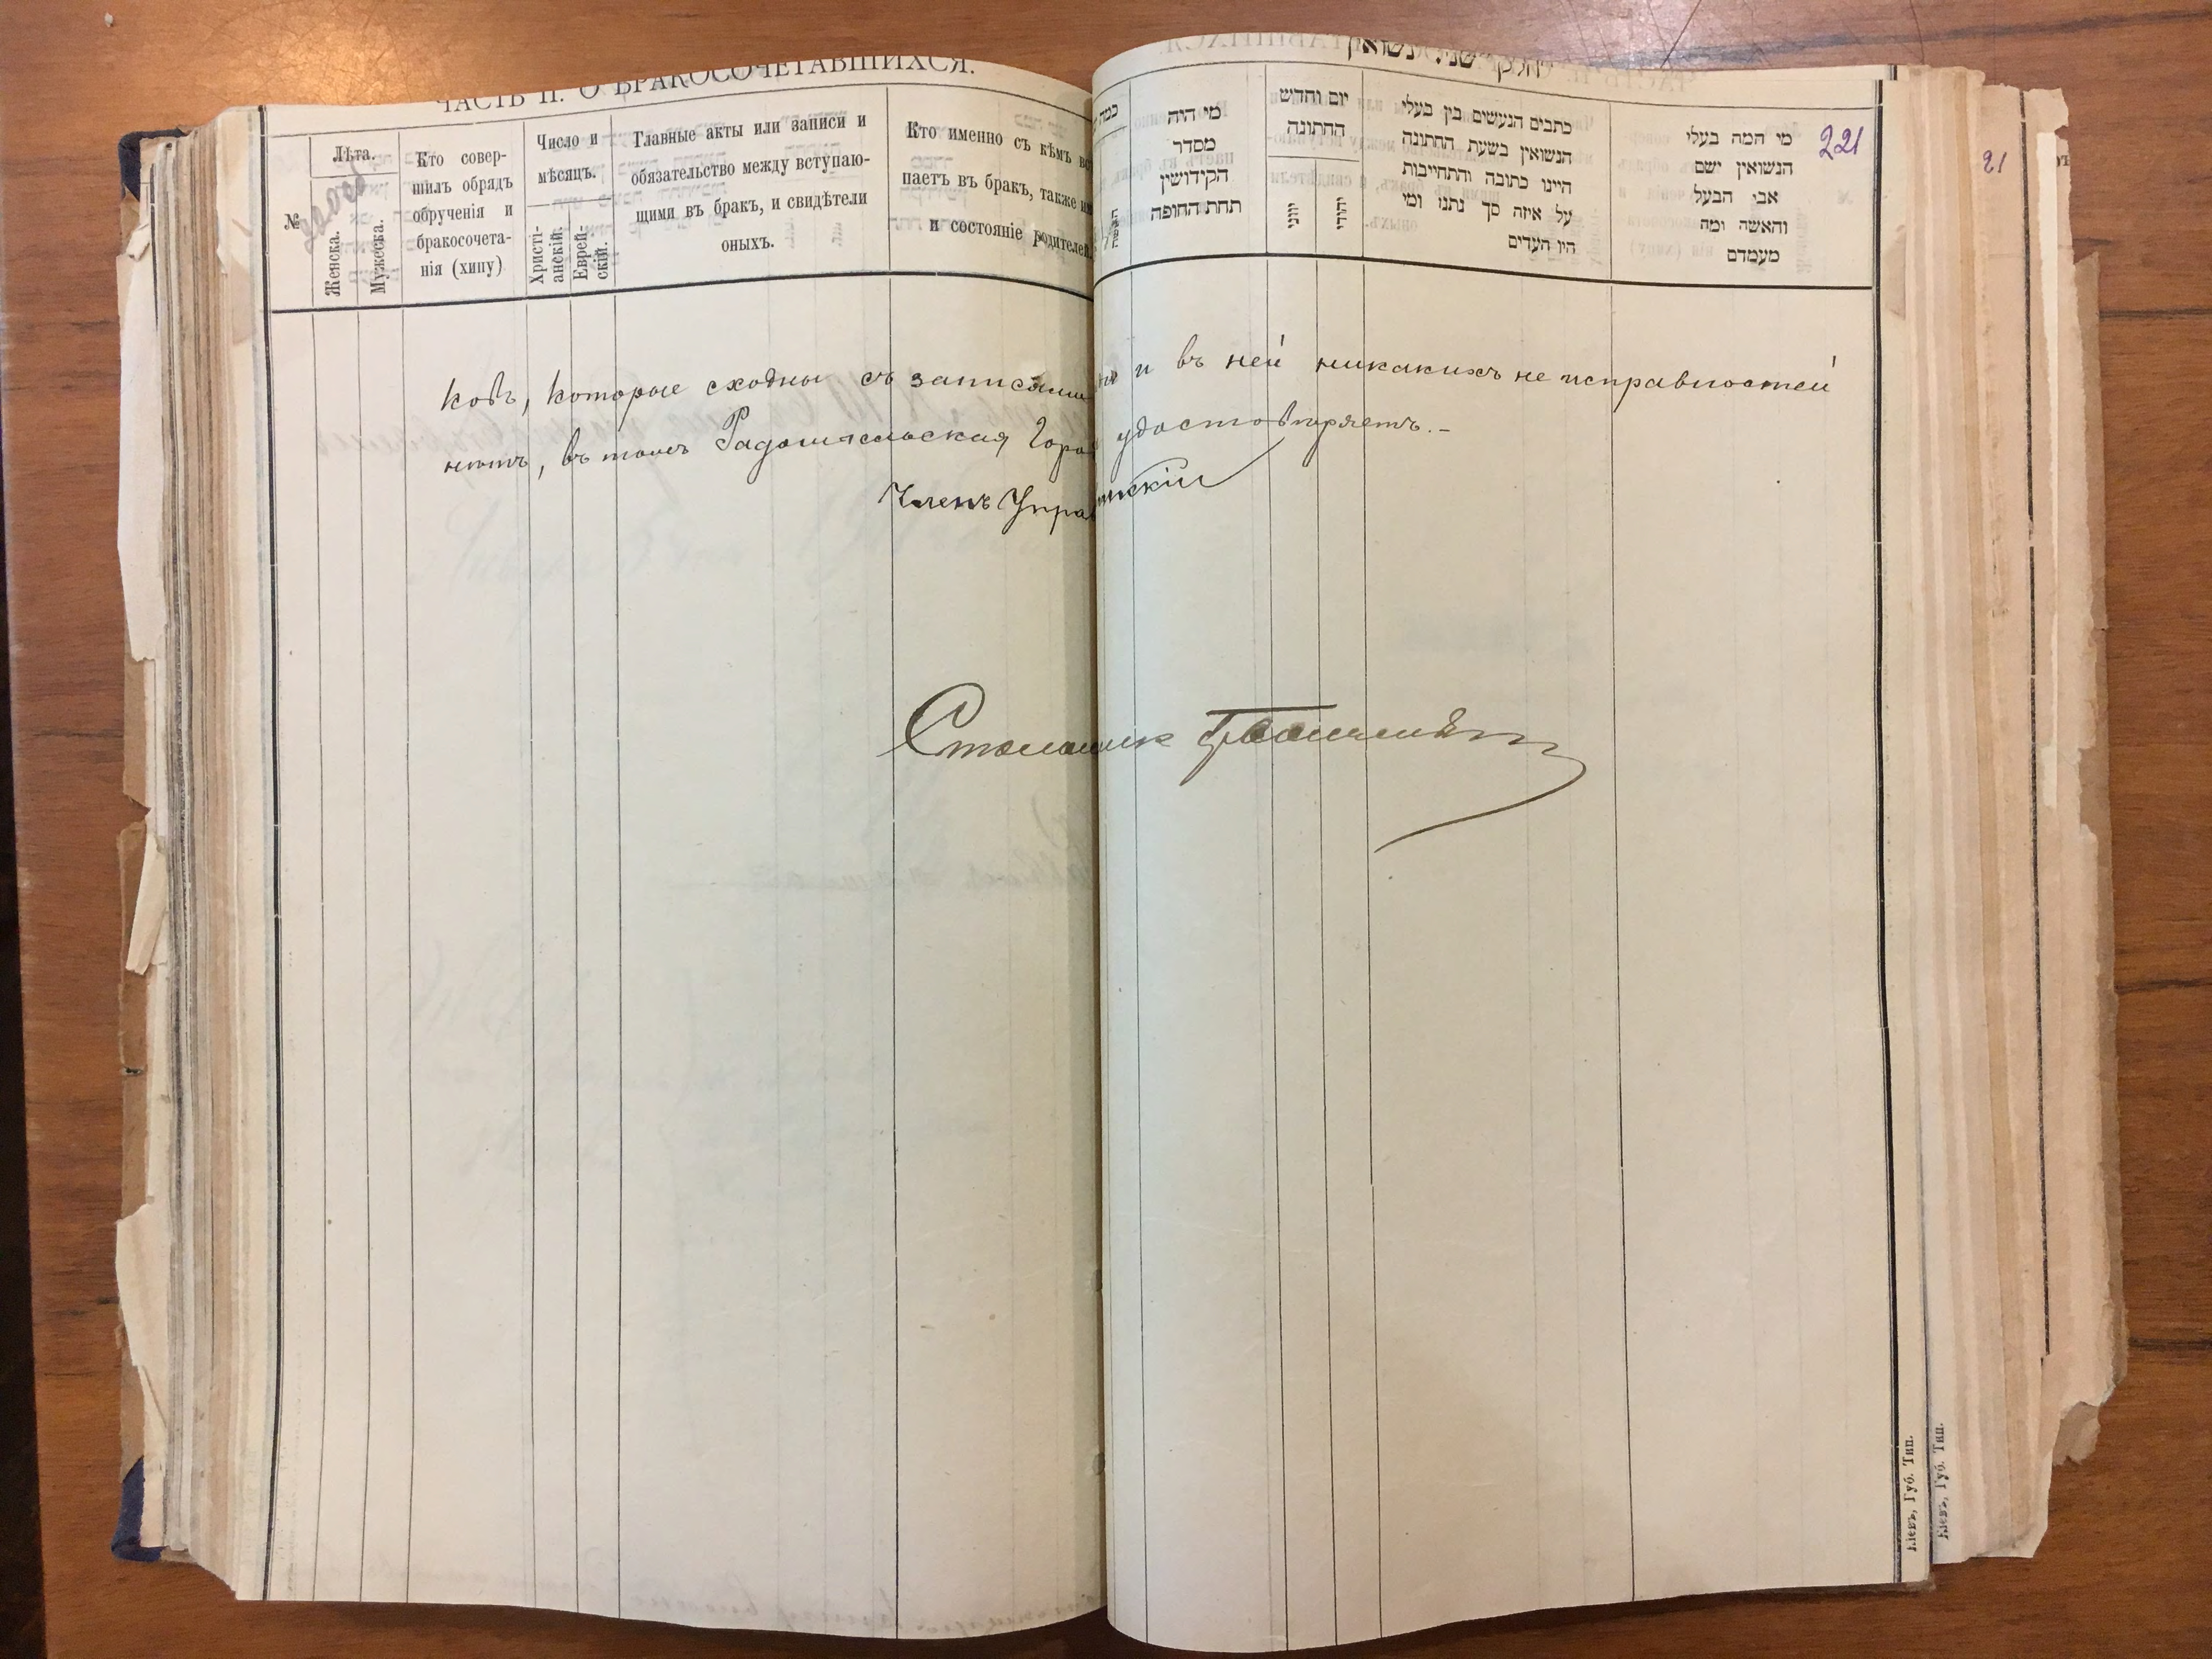 ЧАСТЬ II. О БРАКОСОЧЕТАВШИХСЯ.
№
Лѣта.
Женска.
Мужеска.
Кто совер-
шилъ обрядъ
обрученія и
бракосочета-
нія (хипу)
Число и
мѣсяцъ.
Христі-
анскій.
Еврей-
скій.
Главные акты или записи и
обязательство между вступаю-
щими въ бракъ, и свидѣтели
оныхъ.
Кто именно съ кѣмъ вс
паетъ въ бракъ, также им
и состояніе родителей.
חלק שני נשואין
כמה
מי היה
מסדר
הקידושין
תחת החופה
יום וחדש
החתונה
יווני
יהודי
כתבים הנעשים בין בעלי
הנשואין בשעת החתונה
היינו כתובה והתחייבות
על איזה סך נתנו ומי
היו העדים
מי המה בעלי
הנשואין ישם
אבי הבעל
והאשה ומה
מעמדם
221
21
которые сходны съ записями и въ ней никакихъ не исправностей
нѣтъ, въ томъ Радомысльская Горо удостовѣряетъ.-
Членъ Упра
Кіевъ, Губ. Тип.
Кіевъ, Губ. Тип.